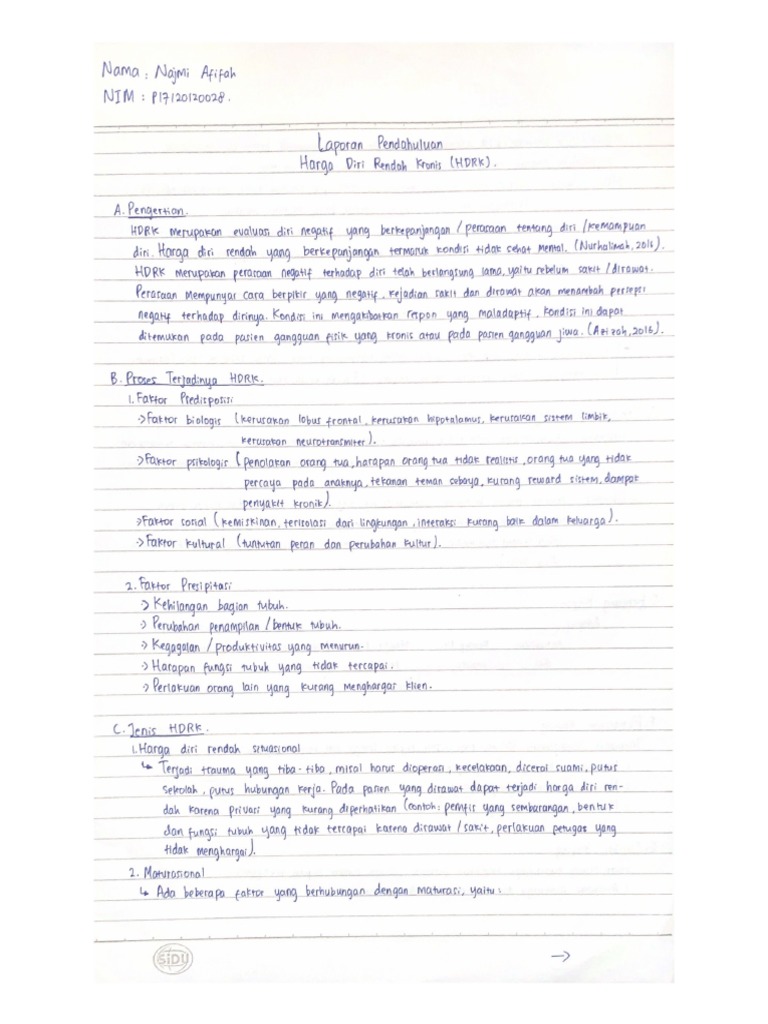 Nama : Najmi Afifah
NIM : P17120120028.
Laporan Pendahuluan
Harga Diri Rendah Kronis (HDRK).
A. Pengertian.
HDRK merupakan evaluasi diri negatif yang berkepanjangan / perasaan tentang diri / kemampuan
diri. Harga diri rendah yang berkepanjangan termasuk kondisi tidak sehat mental. (Nurhalimah, 2016).
HDRK merupakan perasaan negatif terhadap diri telah berlangsung lama, yaitu sebelum sakit / dirawat.
Perasaan mempunyai cara berpikir yang negatif, kejadian sakit dan dirawat akan menambah persepsi
negatif terhadap dirinya. Kondisi ini mengakibatkan respon yang maladaptif, kondisi ini dapat
ditemukan pada pasien gangguan fisik yang kronis atau pada pasien gangguan jiwa. (Azizah, 2016).
B. Proses Terjadinya HDRK.
1. Faktor Predisposisi
-> Faktor biologis (kerusakan lobus frontal, kerusakan hipotalamus, kerusakan sistem limbik,
kerusakan neurotransmiter).
-> Faktor psikologis (penolakan orang tua, harapan orang tua tidak realistis, orang tua yang tidak
percaya pada anaknya, tekanan teman sebaya, kurang reward sistem, dampak
penyakit kronik).
-> Faktor sosial (kemiskinan, terisolasi dari lingkungan, interaksi kurang baik dalam keluarga).
-> Faktor kultural (tuntutan peran dan perubahan kultur).
2. Faktor Presipitasi
-> Kehilangan bagian tubuh.
-> Perubahan penampilan / bentuk tubuh.
-> Kegagalan / produktivitas yang menurun.
-> Harapan fungsi tubuh yang tidak tercapai.
-> Perlakuan orang lain yang kurang menghargai klien.
C. Jenis HDRK.
1. Harga diri rendah situasional
↳ Terjadi trauma yang tiba-tiba, misal harus dioperasi, kecelakaan, dicerai suami, putus
sekolah, putus hubungan kerja. Pada pasien yang dirawat dapat terjadi harga diri ren-
dah karena privasi yang kurang diperhatikan (contoh: pemfis yang sembarangan, bentuk
dan fungsi tubuh yang tidak tercapai karena dirawat / sakit, perlakuan petugas yang
tidak menghargai).
2. Maturasional
↳ Ada beberapa faktor yang berhubungan dengan maturasi, yaitu :
SiDU
->